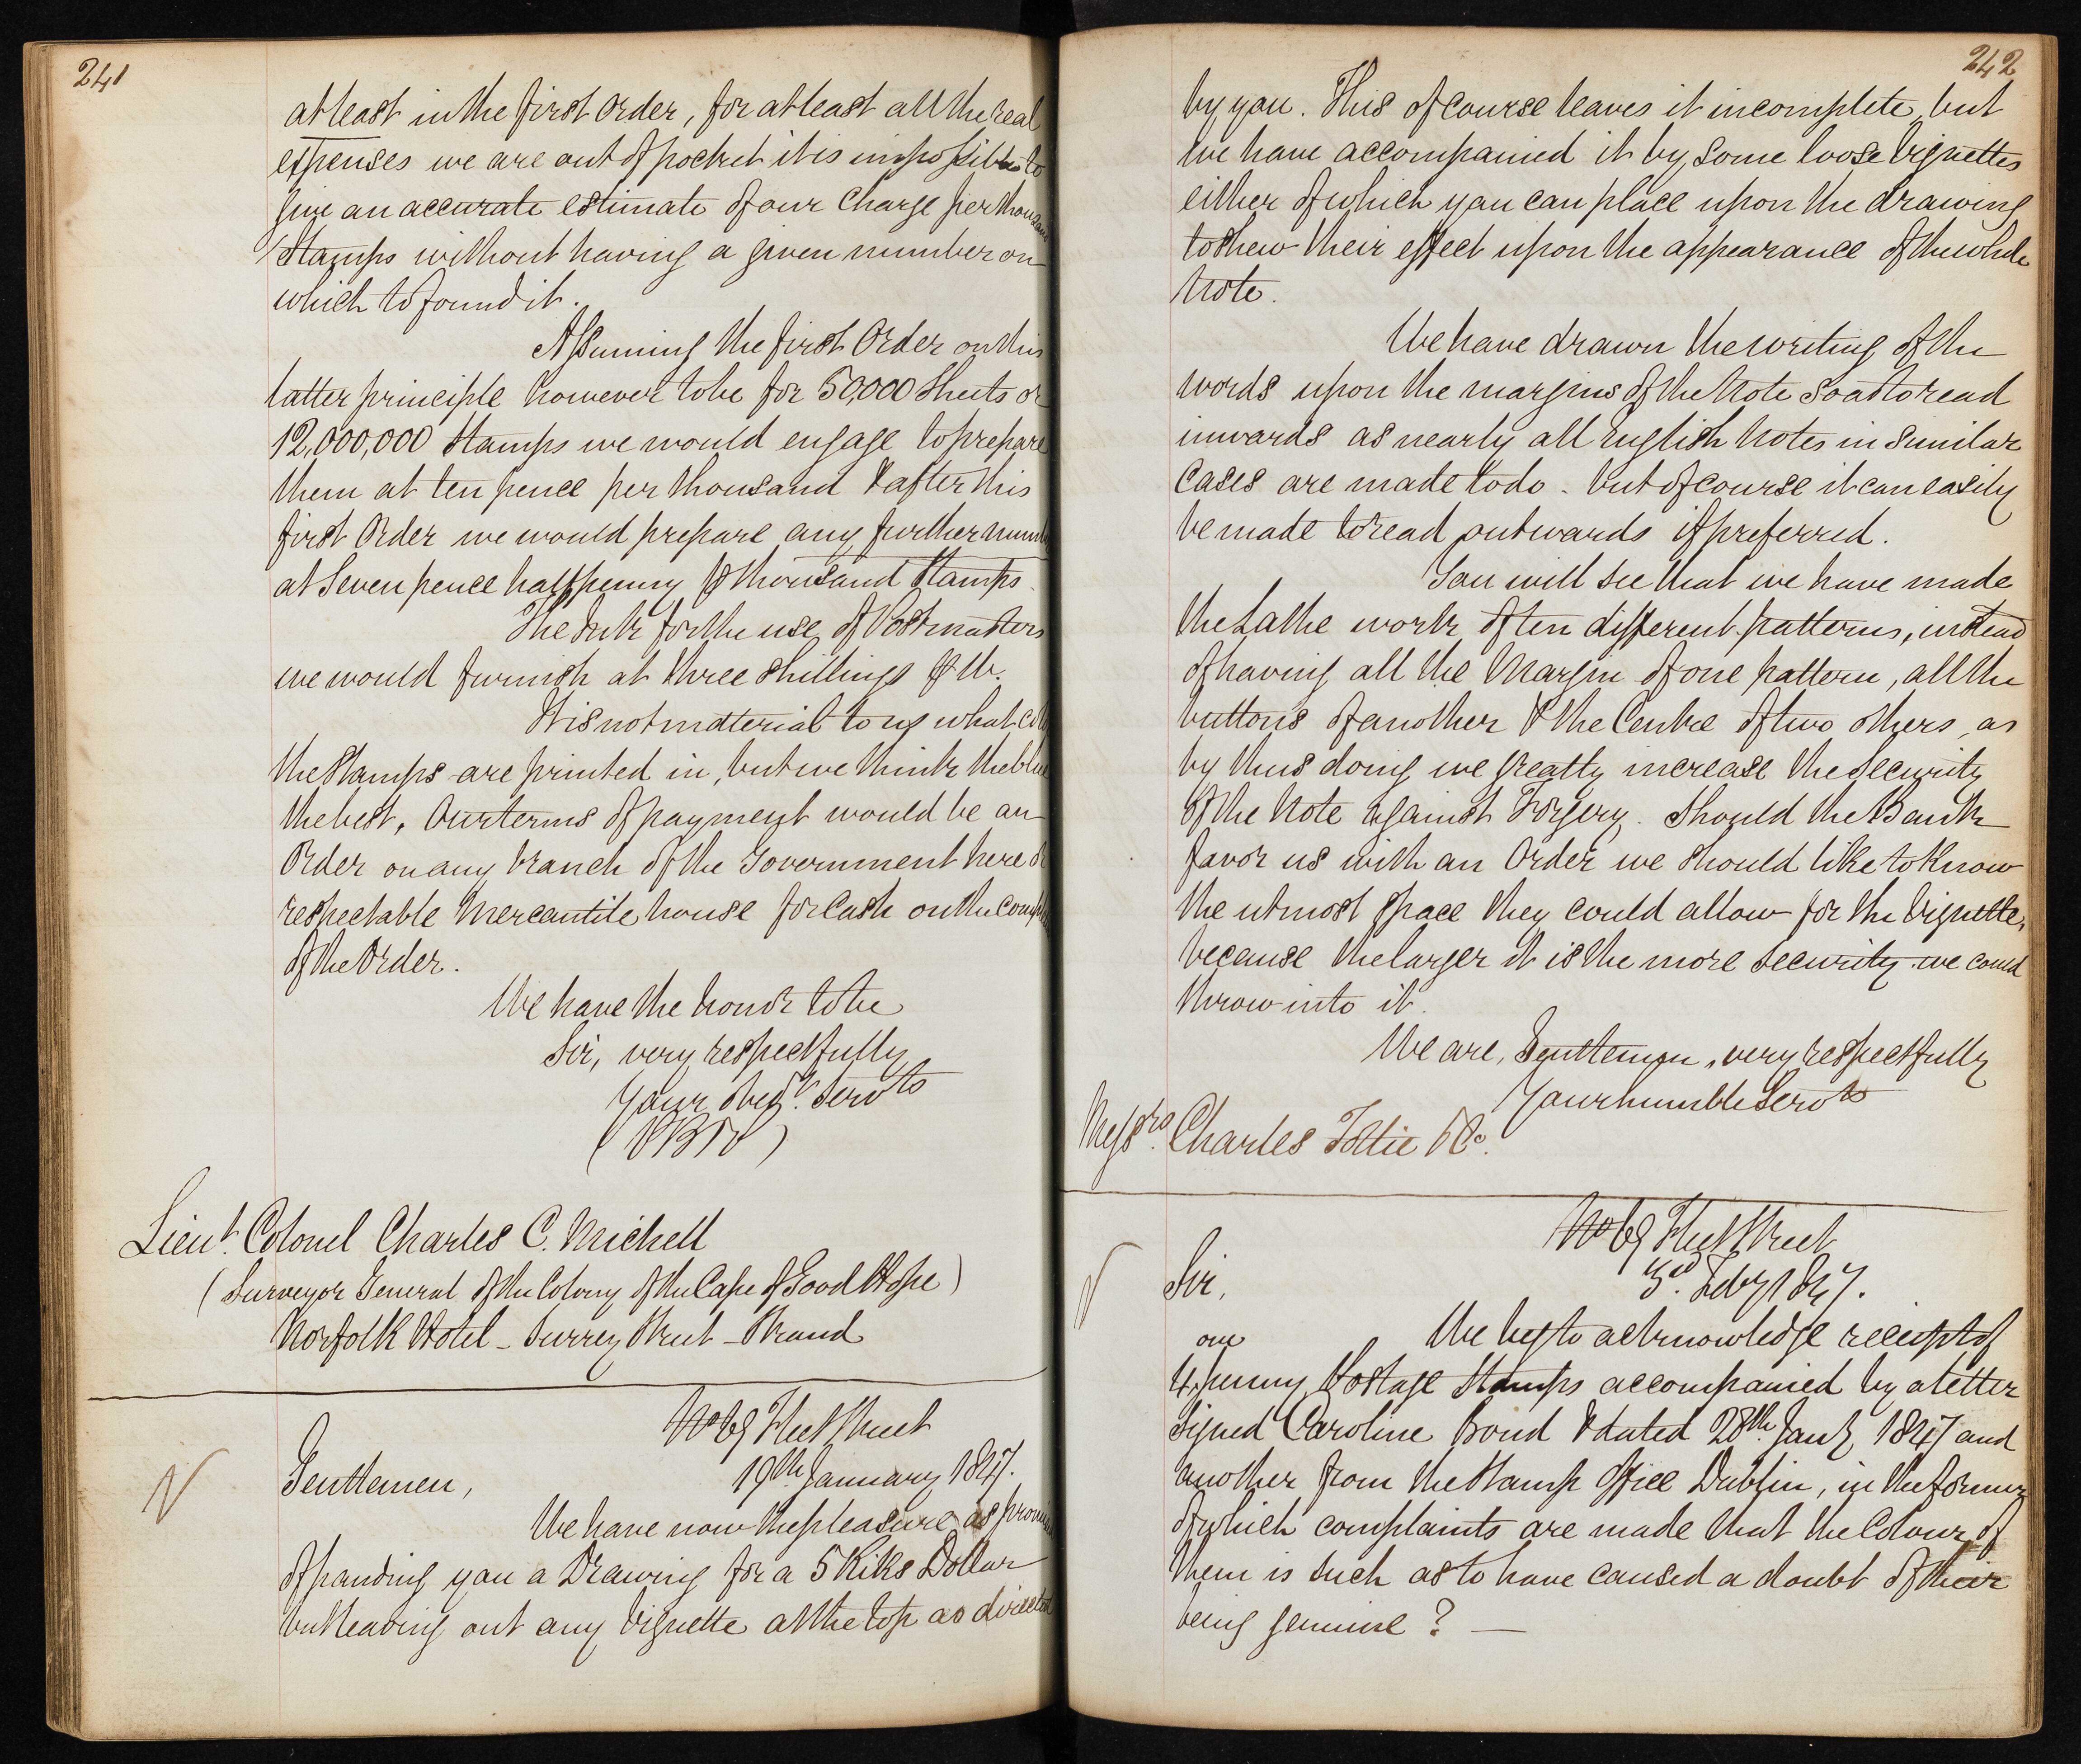 241
at least in the first Order, for at least all the real
expenses we are out of pocket it is impossible to
give an accurate estimate of our Charge per thousand
Stamps without having a given number on
which to found it.
Assuming the first Order on this
latter principle however to be for 50,000 Sheets or
12,000,000 Stamps we would engage to prepare
them at ten pence per thousand & after this
first Order we would prepare any further numb
at Seven pence halfpenny ⅌ thousand Stamps.
The Ink for the use of Postmasters
we would furnish at three shillings ⅌ lb.
It is not material to us what col
the Stamps are printed in, but we think the blue
the best. Our terms of payment would be an
Order on any branch of the Government here or
respectable Mercantile house for Cash on the comple
of the Order.
We have the honor to be
Sir, very respectfully
Your obedt. Servts
(PB&)
Lieut. Colonel Charles C. Michell
(Surveyor General of the Colony of the Cape of Good Hope)
Norfolk Hotel - Surrey Street - Strand
No 69 Fleet Street
Gentlemen,
19th. January 1847.
We have now the pleasure as promis
of handing you a Drawing for a 5 Riks Dollar
but leaving out any Vignette at the top as directed
242
by you. This of course leaves it incomplete, but
we have accompanied it by some loose Vignettes
either of which you can place upon the drawing
to shew their effect upon the appearance of the whole
Note.
We have drawn the writing of the
words upon the margins of the Note so as to read
inwards as nearly all English Notes in similar
Cases are made to do - but of course it can easily
be made to read outwards if preferred.
You will see that we have made
the Lathe work of ten different patterns, instead
of having all the Margin of one pattern, all the
buttons of another & the Centre of two others, as
by thus doing we greatly increase the Security
of the Note against Forgery. Should the Bank
favor us with an Order we should like to know
the utmost space they could allow for the Vignette,
because the larger it is the more security we could
throw into it.
We are, Gentlemen, very respectfully
Your humble Servts
Messrs. Charles Tottie & Co.
No 69 Fleet Street
3rd. Feby 1847.
Sir,
We beg to acknowledge receipt of
one
4, penny Postage Stamps accompanied by a letter
signed Caroline Bond & dated 28th. Jany 1847 and
another from the Stamp Office Dublin, in the former
of which complaints are made that the Colour of
them is such as to have caused a doubt of their
being genuine? —